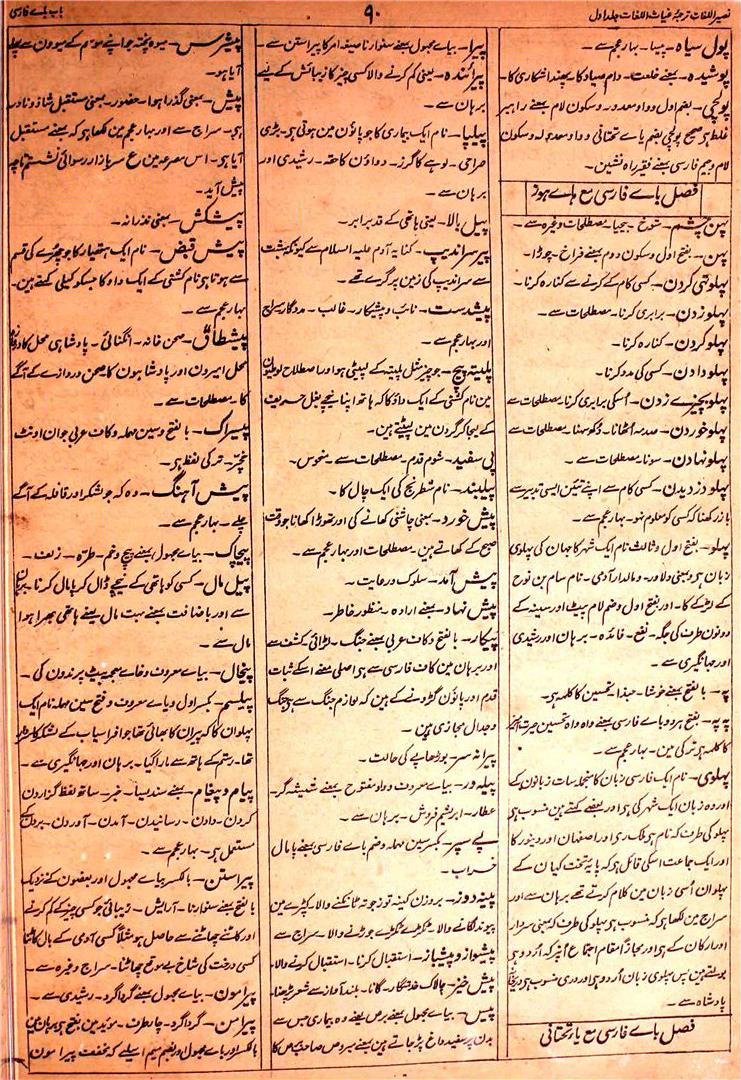 نصیر اللغات ترجمۂ غیاث اللغات جلد اول
۹۰
باب بائے فارسی
پول سیاہ۔ پیسا۔ بہار عجم سے۔
پوشیدہ۔ بمعنے خلعت۔ دام صیاد کا۔ پھندا شکاری کا۔
پوکچی۔ بضم اول و واو معدور و سکون لام بمعنے راہبر
غلط ہی صحیح پوکچی بضم یاے تحتانی و واو معدولہ و سکون
لام و جیم فارسی بمعنے فقیر راہ نشین۔
فصل باے فارسی مع ہاے ہوز
پہن چشم۔ شوخ۔ بیحیا۔ مصطلحات وغیرہ سے۔
پہن۔ بفتح اول و سکون دوم بمعنے فراخ۔ چوڑا۔
پہلو تہی کردن۔ کسی کام کے کرنے سے کنارہ کرنا۔
پہلو زدن۔ برابری کرنا۔ مصطلحات سے۔
پہلو کردن۔ کنارہ کرنا۔
پہلو دادن۔ کسی کی مدد کرنا۔
پہلو بچیزے زدن۔ اسکی برابری کرنا۔ مصطلحات سے
پہلو خوردن۔ صدمہ اٹھانا۔ دکھ سہنا۔ مصطلحات سے
پہلو نہادن۔ سونا۔ مصطلحات سے۔
پہلو دزدیدن۔ کسی کام سے اپنے تئین ایسی تدبیر سے
باز رکھنا کہ کسی کو معلوم نہو۔ بہار عجم سے۔
پہلو۔ بفتح اول و ثالث نام ایک شہر کا جہان کی پہلوی
زبان ہی و بمعنی دلاور۔ و مالدار آدمی۔ نام سام بن نوح
کے لڑکے کا۔ اور بفتح اول و ضم لام پیٹ اور سینہ کے
دونون طرف کی جگہ۔ نفع۔ فائدہ۔ برہان اور رشیدی
اور جہانگیری سے۔
پہ۔ بالفتح بمعنے خوشا۔ حبذا۔ تحسین کا کلمہ ہی۔
پہ پہ۔ بفتح ہر دو باے فارسی بمعنے واہ واہ تحسین حیرت آمیز
کا کلمہ ہی ترکی مین۔ بہار عجم سے۔
پہلوی۔ نام ایک فارسی زبان کا منجملہ سات زبانون کے
اور وہ زبان ایک شہر کی ہی اور بعضے کہتے ہین منسوب ہی
پہلو کی طرف کہ نام ہی ملک رے اور اصفہان اور دینور کا
اور ایک جماعت اسکی قائل ہی کہ پایہ تخت کیان کے
پہلوان اسی زبان مین کلام کرتے تھے برہان سے اور
سراج مین لکھا ہی کہ منسوب ہی پہلو کی طرف کہ بمعنی سردار
اور ارکان کے ہی اور مجازاً مقام اجتماع لشکر کہ اردو ہی
بولتے ہین پس پہلوی زبان اردو ہی اور دری منسوب ہی
پادشاہ سے۔
فصل باے فارسی مع یاے تحتانی
پیرا۔ بیاے مجہول بمعنے سنوارنا صیغہ امر کا پیراستن سے۔
پیرائندہ۔ یعنی کم کرنے والا کسی چیز کا زیبائش کے لیے
برہان سے۔
پیلپا۔ نام ایک بیماری کا جو پاؤن مین ہوتی ہی۔ بڑی
صراحی۔ لوہے کا گرز۔ رشیدی اور
برہان سے۔
پیل بالا۔ یعنی ہاتھی کے قد برابر۔
پیر سراندیب۔ کنایہ آدم علیہ السلام سے کیونکہ بہشت
سے سراندیب کی زمین پر گرے تھے۔
پیشدست۔ نائب و پیشکار۔ غالب۔ مددگار۔ سراج
اور بہار عجم سے۔
پلیتہ پیچ۔ جو چیز مثل پلیتہ کے لپٹی ہو اور اصطلاح لوطیان
مین نام کشتی کے ایک داؤ کا کہ ہاتھ اپنا نیچے بغل حریف
کے لیجا کر گردن مین لپیٹتے ہین۔
پی سفید۔ شوم قدم۔ مصطلحات سے۔ منحوس۔
پیلبند۔ نام شطرنج کی ایک چال کا۔
پیش خورد۔ بمعنی چاشنی کھانے کی اور تھوڑا کھانا جو وقت
صبح کے کھاتے ہین۔ مصطلحات اور بہار عجم سے۔
پیش آمد۔ سلوک و رعایت۔
پیش نہاد۔ بمعنے ارادہ۔ منظور خاطر۔
پیکار۔ بالفتح و کاف عربی بمعنے جنگ۔ لڑائی کشف سے
اور برہان مین کاف فارسی سے ہی اصلی معنے اسکے ثبات
قدم اور پاؤن گڑونے کے ہین کہ لوازم جنگ سے ہی جنگ
و جدال مجازی ہین۔
پیرانہ سر۔ بوڑھاپے کی حالت۔
پیلہ ور۔ بیاے معروف و واو مفتوح بمعنے شیشہ گر۔
عطار۔ ابریشم فروش۔ برہان سے۔
پے سپر۔ بکسر سین مہملہ و ضم باے فارسی بمعنے پامال
خراب۔
پینہ دوز۔ بروزن کینہ توز جوتہ ٹانکنے والا۔ کپڑے مین
پیوند لگانے والا۔ ٹکڑے ٹکڑے جوڑنے والا۔ سراج سے
پیشواز و پیشباز۔ استقبال کرنا۔ استقبال کرنے والا۔
پیش خیز۔ چالاک خدمتگار۔ گانا۔ بلند آواز سے شعر پڑھنا۔
پیس۔ بیاے مجہول بمعنے برص یعنے وہ بیماری جس سے
بدن پر سفید داغ پڑ جاتے ہین بمعنے مبروص صاحب برص کا
پیشرس۔ میوہ پختہ جو اپنے موسم کے میوون سے پہلے
آیا ہو۔
پیش۔ بمعنی گذرا ہوا۔ حضور۔ بمعنی مستقبل شاذ و نادر
ہی۔ سراج سے اور بہار عجم مین لکھا ہی کہ بمعنے مستقبل
آیا ہی۔ اس مصرعہ مین ع سر بازار رسوائی نشستم تاچہ
پیش آید۔
پیشکش۔ بمعنی نذرانہ۔
پیش قبض۔ نام ایک ہتھیار کا جو چھرے کی قسم
سے ہوتا ہی نام کشتی کے ایک داؤ کا جسکو کیلی کہتے ہین۔
بہار عجم سے۔
پیشطاق۔ صحن خانہ۔ انگنائی۔ پادشاہی محل کا دروازہ
محل امیرون اور پادشاہون کا صحن دروازے کے آگے
کا۔ مصطلحات سے۔
پیسراک۔ بالفتح و سین مہملہ و کاف عربی جوان اونٹ
خچر۔ ترکی لفظ ہی۔
پیش آہنگ۔ وہ کہ جو لشکر اور قافلہ کے آگے
چلے۔ بہار عجم سے۔
پیچاک۔ بیاے مجہول بمعنے پیچ و خم۔ طرہ۔ زلف۔
پیل مال۔ کسی کو ہاتھی کے نیچے ڈال کر پامال کرنا۔ برہان
سے اور باضافت بمعنے بہت مال یعنے ہاتھی بھرا ہوا
مال سے۔
پیخال۔ بیاے معروف و خاے معجمہ بیٹ پرندون کی۔
پیلسم۔ بکسر اول و یاے معروف و فتح سین مہملہ نام ایک
پہلوان کا کہ پیران کا بھائی تھا جو افراسیاب کے لشکر کا سردار
تھا۔ رستم کے ہاتھ سے مارا گیا۔ برہان اور جہانگیری سے۔
پیام و پیغام۔ بمعنے سندیسا۔ خبر۔ ساتھ لفظ گزاردن
کردن۔ دادن۔ رسانیدن۔ آمدن۔ آوردن۔ بردن کے
مستعمل ہی۔ بہار عجم سے۔
پیراستن۔ بالکسر بیاے مجہول اور بعضون کے نزدیک
بالفتح بمعنے سنوارنا۔ آرایش۔ زیبائی جو کسی چیز کے کم کرنے
اور کاٹنے چھانٹنے سے حاصل ہو مثلاً کسی آدمی کے بال کاٹنا
کسی درخت کی شاخ بے موقع چھانٹنا۔ سراج وغیرہ سے۔
پیرامون۔ بیاے مجہول بمعنے گرداگرد۔ رشیدی سے۔
پیرامن۔ گرداگرد۔ چارطرف۔ مؤید مین بفتح ہی برہان مین
بالکسر اور یاے مجہول و بضم میم اسلیے کہ مخفف پیرامون